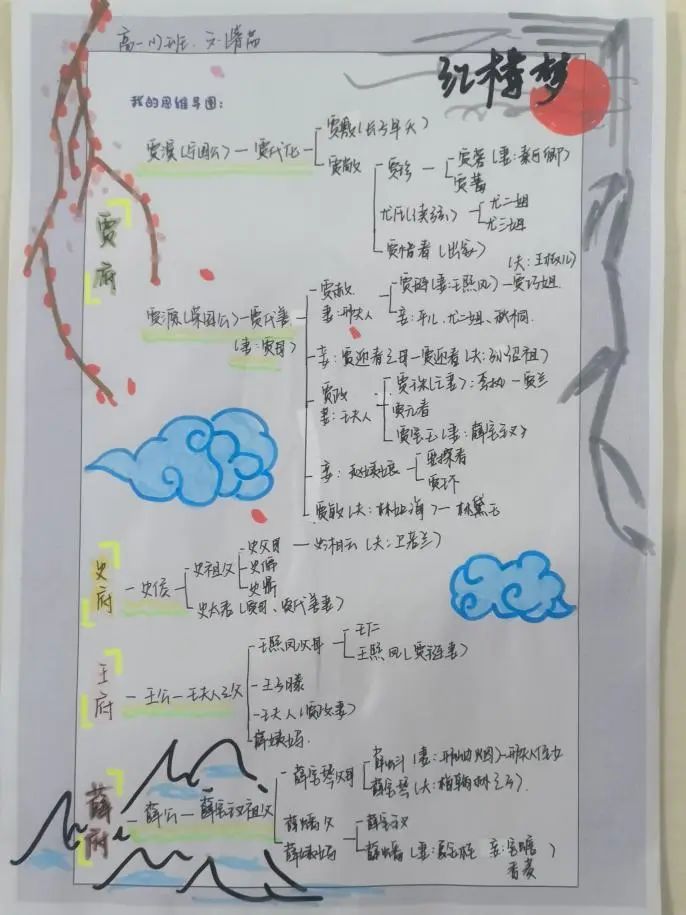 高一
红楼梦
我的思维导图:
贾府
贾演(宁国公)—贾代化
贾敷(长子早夭)
贾敬
贾珍
贾蓉(妻:秦可卿)
贾蔷
尤氏(续弦)
尤二姐
尤三姐
贾惜春(出家)
(夫:王板儿)
贾源(荣国公)—贾代善
(妻:贾母)
贾赦
妻:邢夫人
贾琏(妻:王熙凤)—贾巧姐
妾:平儿、尤二姐、秋桐.
妾:贾迎春之母—贾迎春(夫:孙绍祖)
贾政
妻:王夫人
贾珠(亡妻):李纨—贾兰
贾元春
贾宝玉(妻:薛宝钗)
妾:赵姨娘
贾探春
贾环
贾敏(夫:林如海)—林黛玉
史府
史侯
史祖父
史父母—史湘云(夫:卫若兰)
史鼐
史鼎
史太君(贾母、贾代善妻)
王府
王公—王夫人之父
王熙凤父母
王仁
王熙凤(贾琏妻)
王子腾
王夫人(贾政妻)
薛姨妈.
薛府
薛公—薛宝钗祖父
薛宝琴父母
薛蝌(妻:邢岫烟)—邢夫人侄女
薛宝琴(夫:梅翰林之子)
薛蟠父
薛姨妈
薛宝钗
薛蟠(妻:夏金桂 妾:宝蟾
香菱)